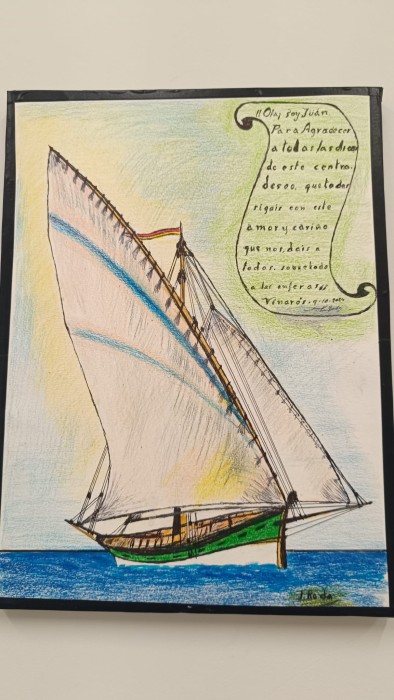 ¡¡Ola, soy Juan
Para Agradecer
a todas las chicas
de este centro,
deseo, que todas
sigais con este
amor y cariño
que nos, deis a
todos. sobretodo
a los enfermos
Vinaròs. 9-10.
J. Roda